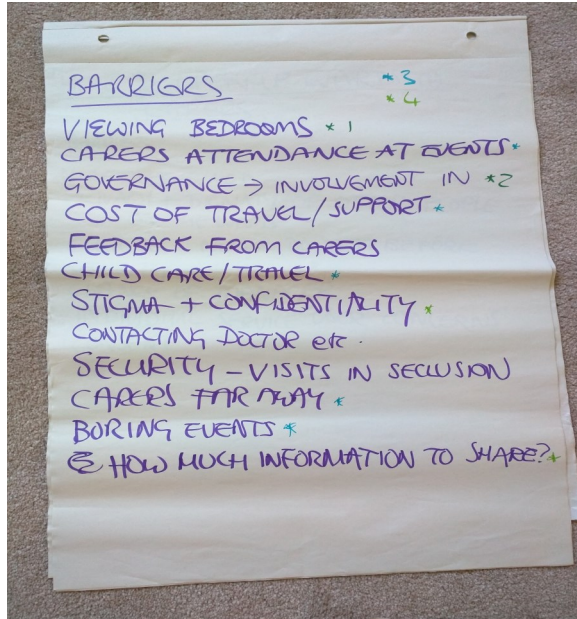 BARRIERS *3
*4
VIEWING BEDROOMS * 1
CARERS ATTENDANCE AT EVENTS *
GOVERNANCE → INVOLVEMENT IN *2
COST OF TRAVEL/SUPPORT *
FEEDBACK FROM CARERS
CHILD CARE/TRAVEL *
STIGMA + CONFIDENTIALITY *
CONTACTING DOCTOR etc.
SECURITY - VISITS IN SECLUSION
CARERS FAR AWAY *
BORING EVENTS *
HOW MUCH INFORMATION TO SHARE? *